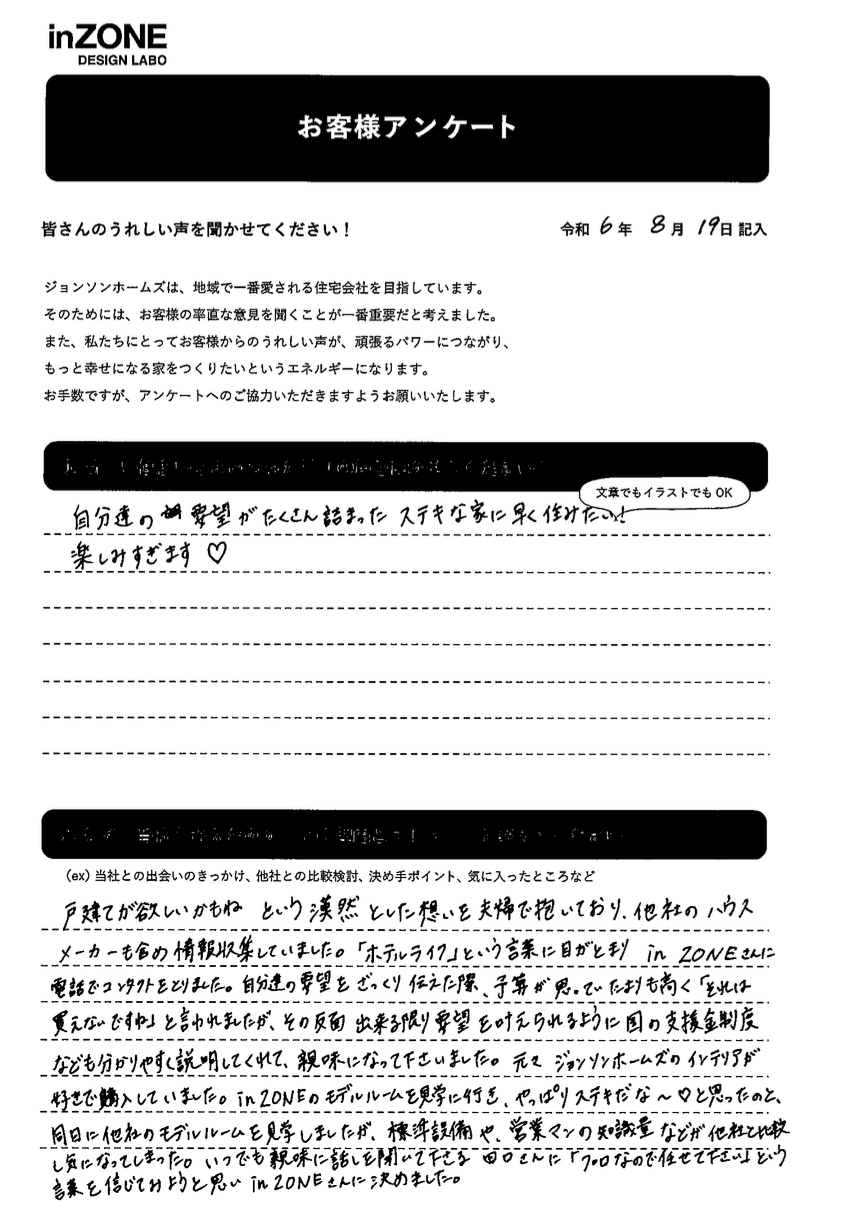 inZONE
DESIGN LABO
お客様アンケート
皆さんのうれしい声を聞かせてください！
令和 6 年 8 月 19 日 記入
ジョンソンホームズは、地域で一番愛される住宅会社を目指しています。
そのためには、お客様の率直な意見を聞くことが一番重要だと考えました。
また、私たちにとってお客様からのうれしい声が、頑張るパワーにつながり、
もっと幸せになる家をつくりたいというエネルギーになります。
お手数ですが、アンケートへのご協力いただきますようお願いいたします。
文章でもイラストでもOK
自分達の要望がたくさん詰まった ステキな家に早く住みたい!
楽しみすぎます♡
（ex）当社との出会いのきっかけ、他社との比較検討、決め手ポイント、気に入ったところなど
戸建てが欲しいかもね という漠然とした想いを夫婦で抱いており、他社のハウス
メーカーも含め情報収集していました。「ホテルライク」という言葉に目がとまり in ZONEさんに
電話でコンタクトをとりました。自分達の要望をざっくり伝えた際、予算が思っていたよりも高く「それは
買えないですね」と言われましたが、その反面 出来る限り要望を叶えられるように国の支援金制度
なども分かりやすく説明してくれて、親味になって下さいました。元々 ジョンソンホームズのインテリアが
好きで購入していました。in ZONEのモデルルームを見学に行き、やっぱりステキだな〜♡と思ったのと、
同日に他社のモデルルームを見学しましたが、標準設備や、営業マンの知識量などが他社と比較
し気になってしまった。いつでも親味に話しを聞いて下さる 田口さんに「プロなので任せて下さい」という
言葉を信じてみようと思い in ZONEさんに決めました。